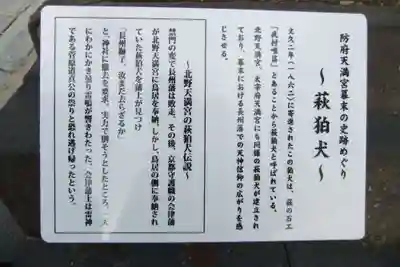 防府天満宮幕末の史跡めぐり
～萩狛犬～
文久二年(一八六二)に寄進されたこの狛犬は、萩の石工
とあることから萩狛犬と呼ばれている。
北野天満宮、太宰府天満宮にも同様の萩狛犬が建立され
ており、幕末における長州藩での天神信仰の広がりを感
じさせる。
～北野天満宮の萩狛犬伝説～
禁門の変で長州藩は敗走、その後、京都守護職の会津藩
が北野天満宮に鳥居を奉納。しかし、鳥居の側に奉納され
ていた萩狛犬を藩士が見つけ
「長州獅子、汝まだ去らざるか」
と、神社に撤去を要求。実力で倒そうとしたところ、一天
にわかにかき曇り雷鳴が響きわたった。会津藩士は雷神
である菅原道真公の祟りと恐れ逃げ帰ったという。